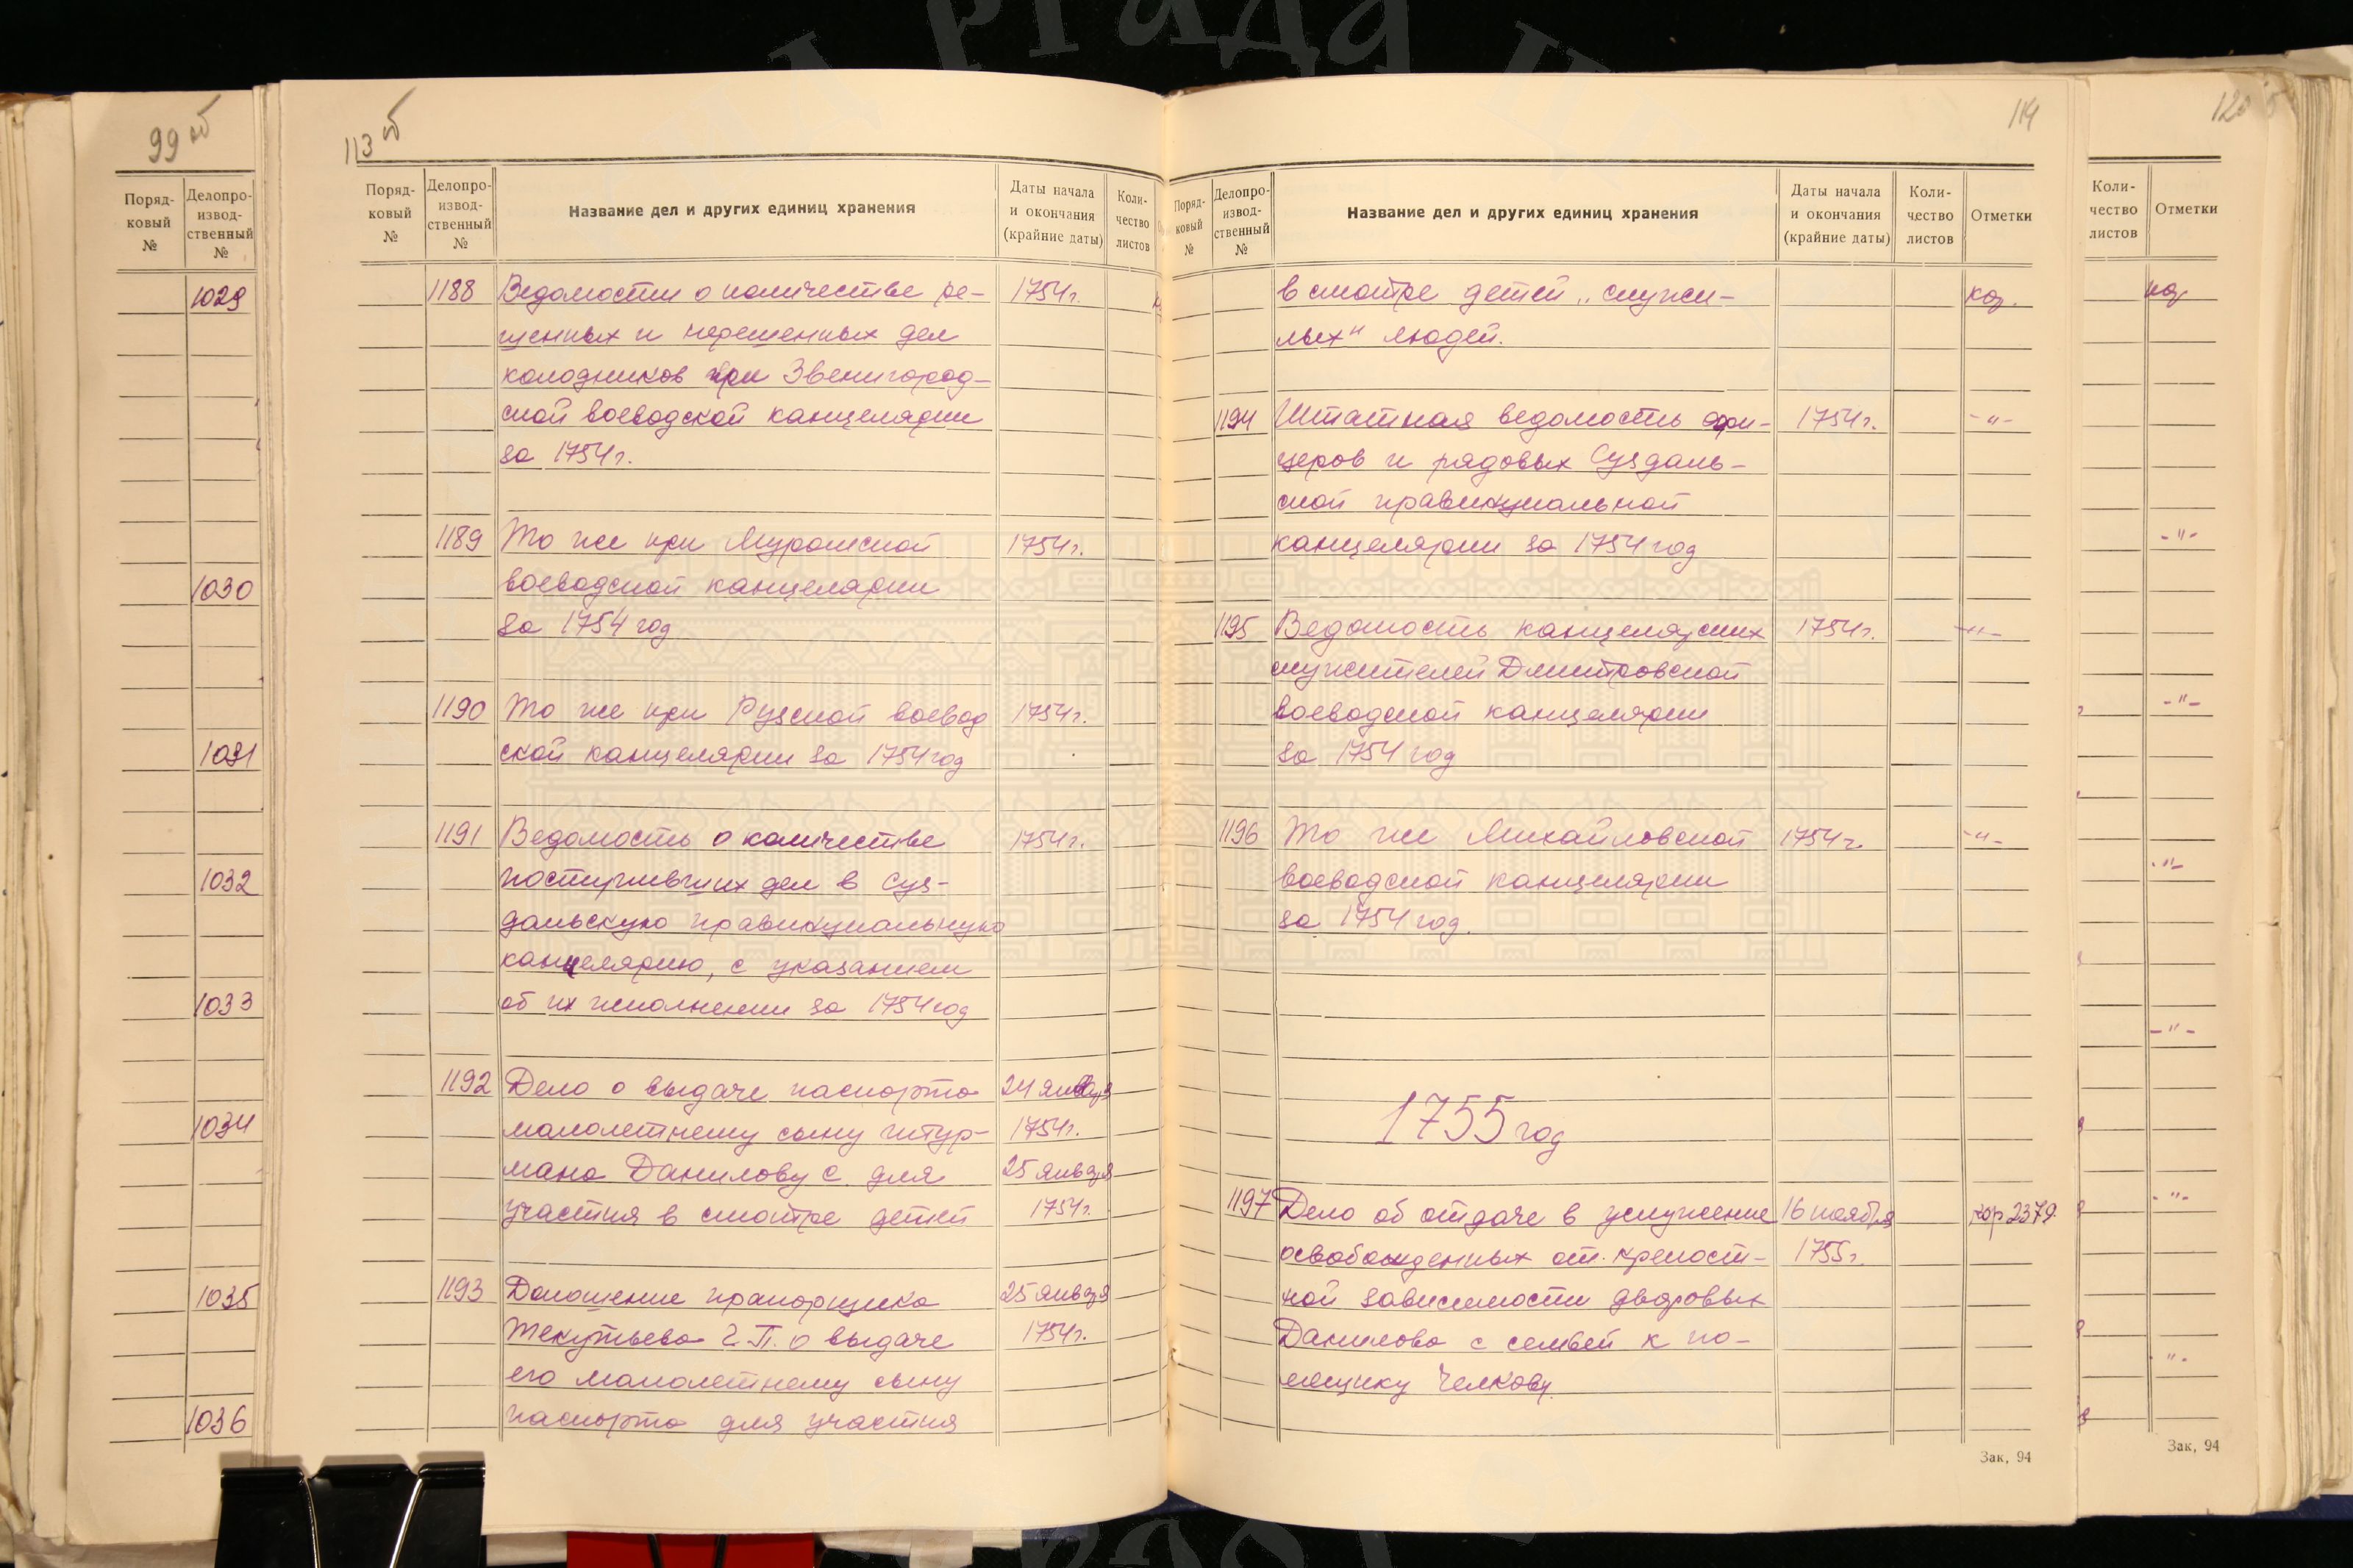 99 об
Поряд-
ковый
№
Делопро-
извод-
ственный
№
1029
1030
1031
1032
1033
1034
1035
1036
113 об
Поряд-
ковый
№
Делопро-
извод-
ственный
№
Название дел и других единиц хранения
Даты начала
и окончания
(крайние даты)
Коли-
чество
листов
1188 Ведомости о количестве ре- 1754 г.
шенных и нерешенных дел
колодников при Звенигород-
ской воеводской канцелярии
за 1754 г.
1189 То же при Муромской 1754 г.
воеводской канцелярии
за 1754 год
1190 То же при Рузской воевод 1754 г.
ской канцелярии за 1754 год
1191 Ведомость о количестве 1754 г.
поступивших дел в Суз-
дальскую правинциальную
канцелярию, с указанием
об их исполнении за 1754 год
1192 Дело о выдаче паспорта 24 января
малолетнему сыну штур- 1754 г.
мана Данилову С. для 25 января
участия в смотре детей 1754 г.
1193 Доношение прапорщика 25 января
Текутьева Г. П. о выдаче 1754 г.
его малолетнему сыну
паспорта для участия
114
Поряд-
ковый
№
Делопро-
извод-
ственный
№
Название дел и других единиц хранения
Даты начала
и окончания
(крайние даты)
Коли-
чество
листов
Отметки
в смотре детей „служи- кор.
лых" людей.
1194 Штатная ведомость офи- 1754 г. -"-
церов и рядовых Суздаль-
ской правинциальной
канцелярии за 1754 год
1195 Ведомость канцелярских 1754 г. -"-
служителей Дмитровской
воеводской канцелярии
за 1754 год
1196 То же Михайловской 1754 г. -"-
воеводской канцелярии
за 1754 год.
1755 год
1197 Дело об отдаче в услужение 16 ноября кор 2379
освобожденных от крепост- 1755 г.
ной зависимости дворовых
Данилова с семьей к по-
мещику Челкову.
Зак, 94
Коли-
чество
листов
Отметки
кор
-"-
-"-
-"-
-"-
-"-
-"-
Зак, 94